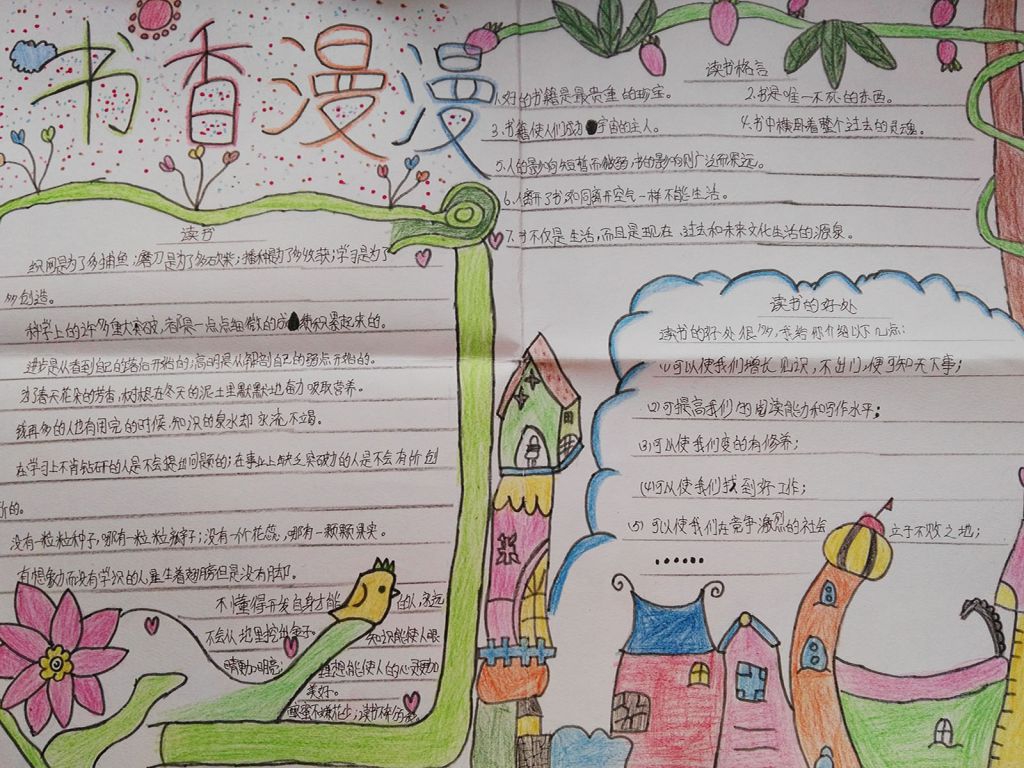 书香漫漫
读书
织网是为了多捕鱼;磨刀是为了多砍柴;播种是为了多收获;学习是为了
多创造。
科学上的许多重大突破,都是一点点细微的成 积累起来的。
进步是从看到自己的落后开始的;高明是从解剖自己的弱点开始的。
为了春天花朵的芳香,树根在冬天的泥土里默默地奋力吸取营养。
钱再多的人也有用完的时候,知识的泉水却永流不竭。
在学习上不肯钻研的人是不会提出问题的;在事业上缺乏突破力的人是不会有所创
新的。
没有一粒粒种子,哪有一粒粒 ;没有一个花蕊,哪有一颗颗果实。
有想象力而没有学识的人是生着翅膀但是没有脚。
不懂得开发自身才能的人,永远
不会从地里挖出金子。 知识能使人眼
睛更加明亮;理想能使人的心灵更加
美好。
酿蜜不嫌花少;读书不
读书格言
1.好的书籍是最贵重的珍宝。 2.书是唯一不死的东西。
3.书籍使人们成为宇宙的主人。 4.书中横卧着整个过去的灵魂。
5.人的影响短暂而微弱,书的影响则广泛而深远。
6.人离开了书如同离开空气一样不能生活。
7.书不仅是生活,而且是现在、过去和未来文化生活的源泉。
读书的好处
读书的好处很多,我给你介绍以下几点:
(1)可以使我们增长见识,不出门,便可知天下事;
(2)可提高我们的阅读能力和写作水平;
(3)可以使我们变的有修养;
(4)可以使我们找到好工作;
(5)可以使我们在竞争激烈的社会立于不败之地;
……